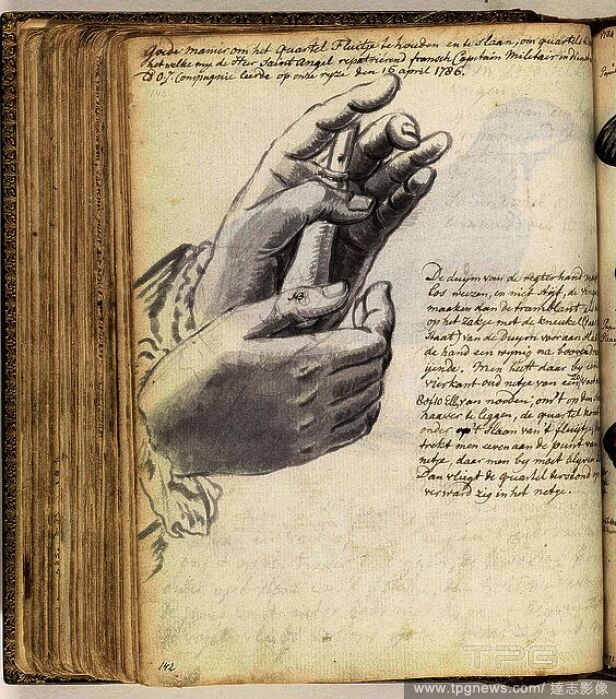 Goede manier om het Quartel Fluitje te houden en te slaan, om quartels
het welke my de Heer Saint Angel repatriërend fransch Capitain Militair
Compagnie leerde op onze ryze den 16 april 1786.
NB
De duym van de regter hand
los wezen, en niet styf, de
maaken dan de tramblant
op het zakje met de kneukel
staat) van de Duym vooraan
de hand een wynig na booven
jende. Men heeft daar by
vierkant oud netje van
8 of 10 Ell, van nooden, om't op den
haaver te leggen, de quartel
onder op't slaan van't fluitje
trekt men even aan de punt van
netje, daar men by moet blyven
Dan vliegt de quartel terstond
verward zig in het netje.
142
TPG
www.tpgnews.com/ 達志影像